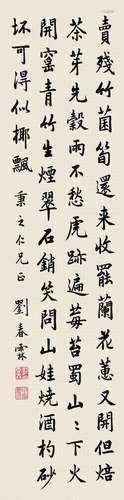 賣殘竹菌筍還来收罷蘭花蕙又開但焙
茶芽先穀雨不愁虎跡遍莓苔蜀山山下火
開窰青竹生煙翠石銷笑問山娃燒酒杓砂
坏可得似椰飄
秉之仁兄正
劉春霖